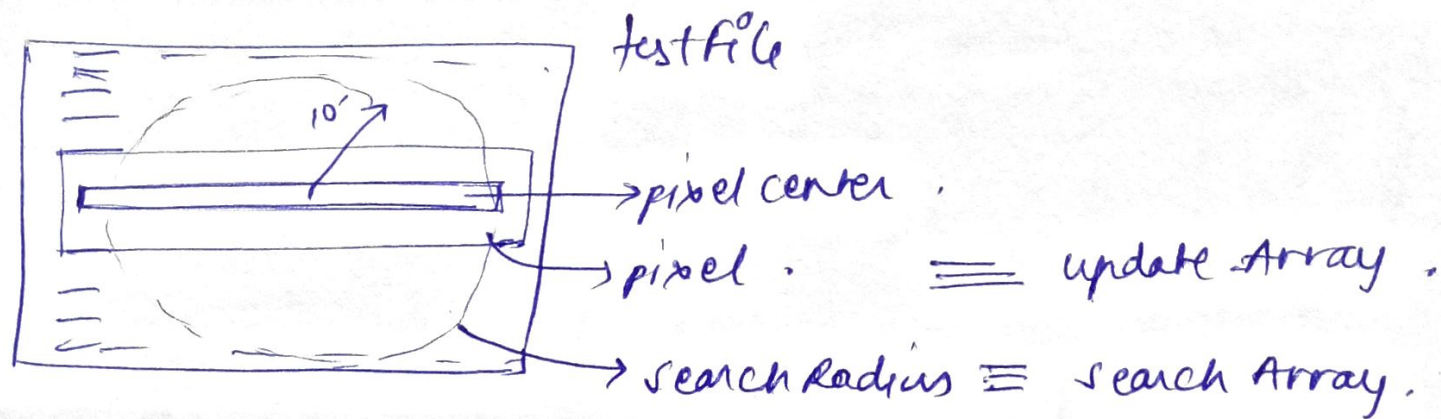 testfile
10'
pixel center .
pixel . ≡ update Array .
search Radius ≡ search Array .